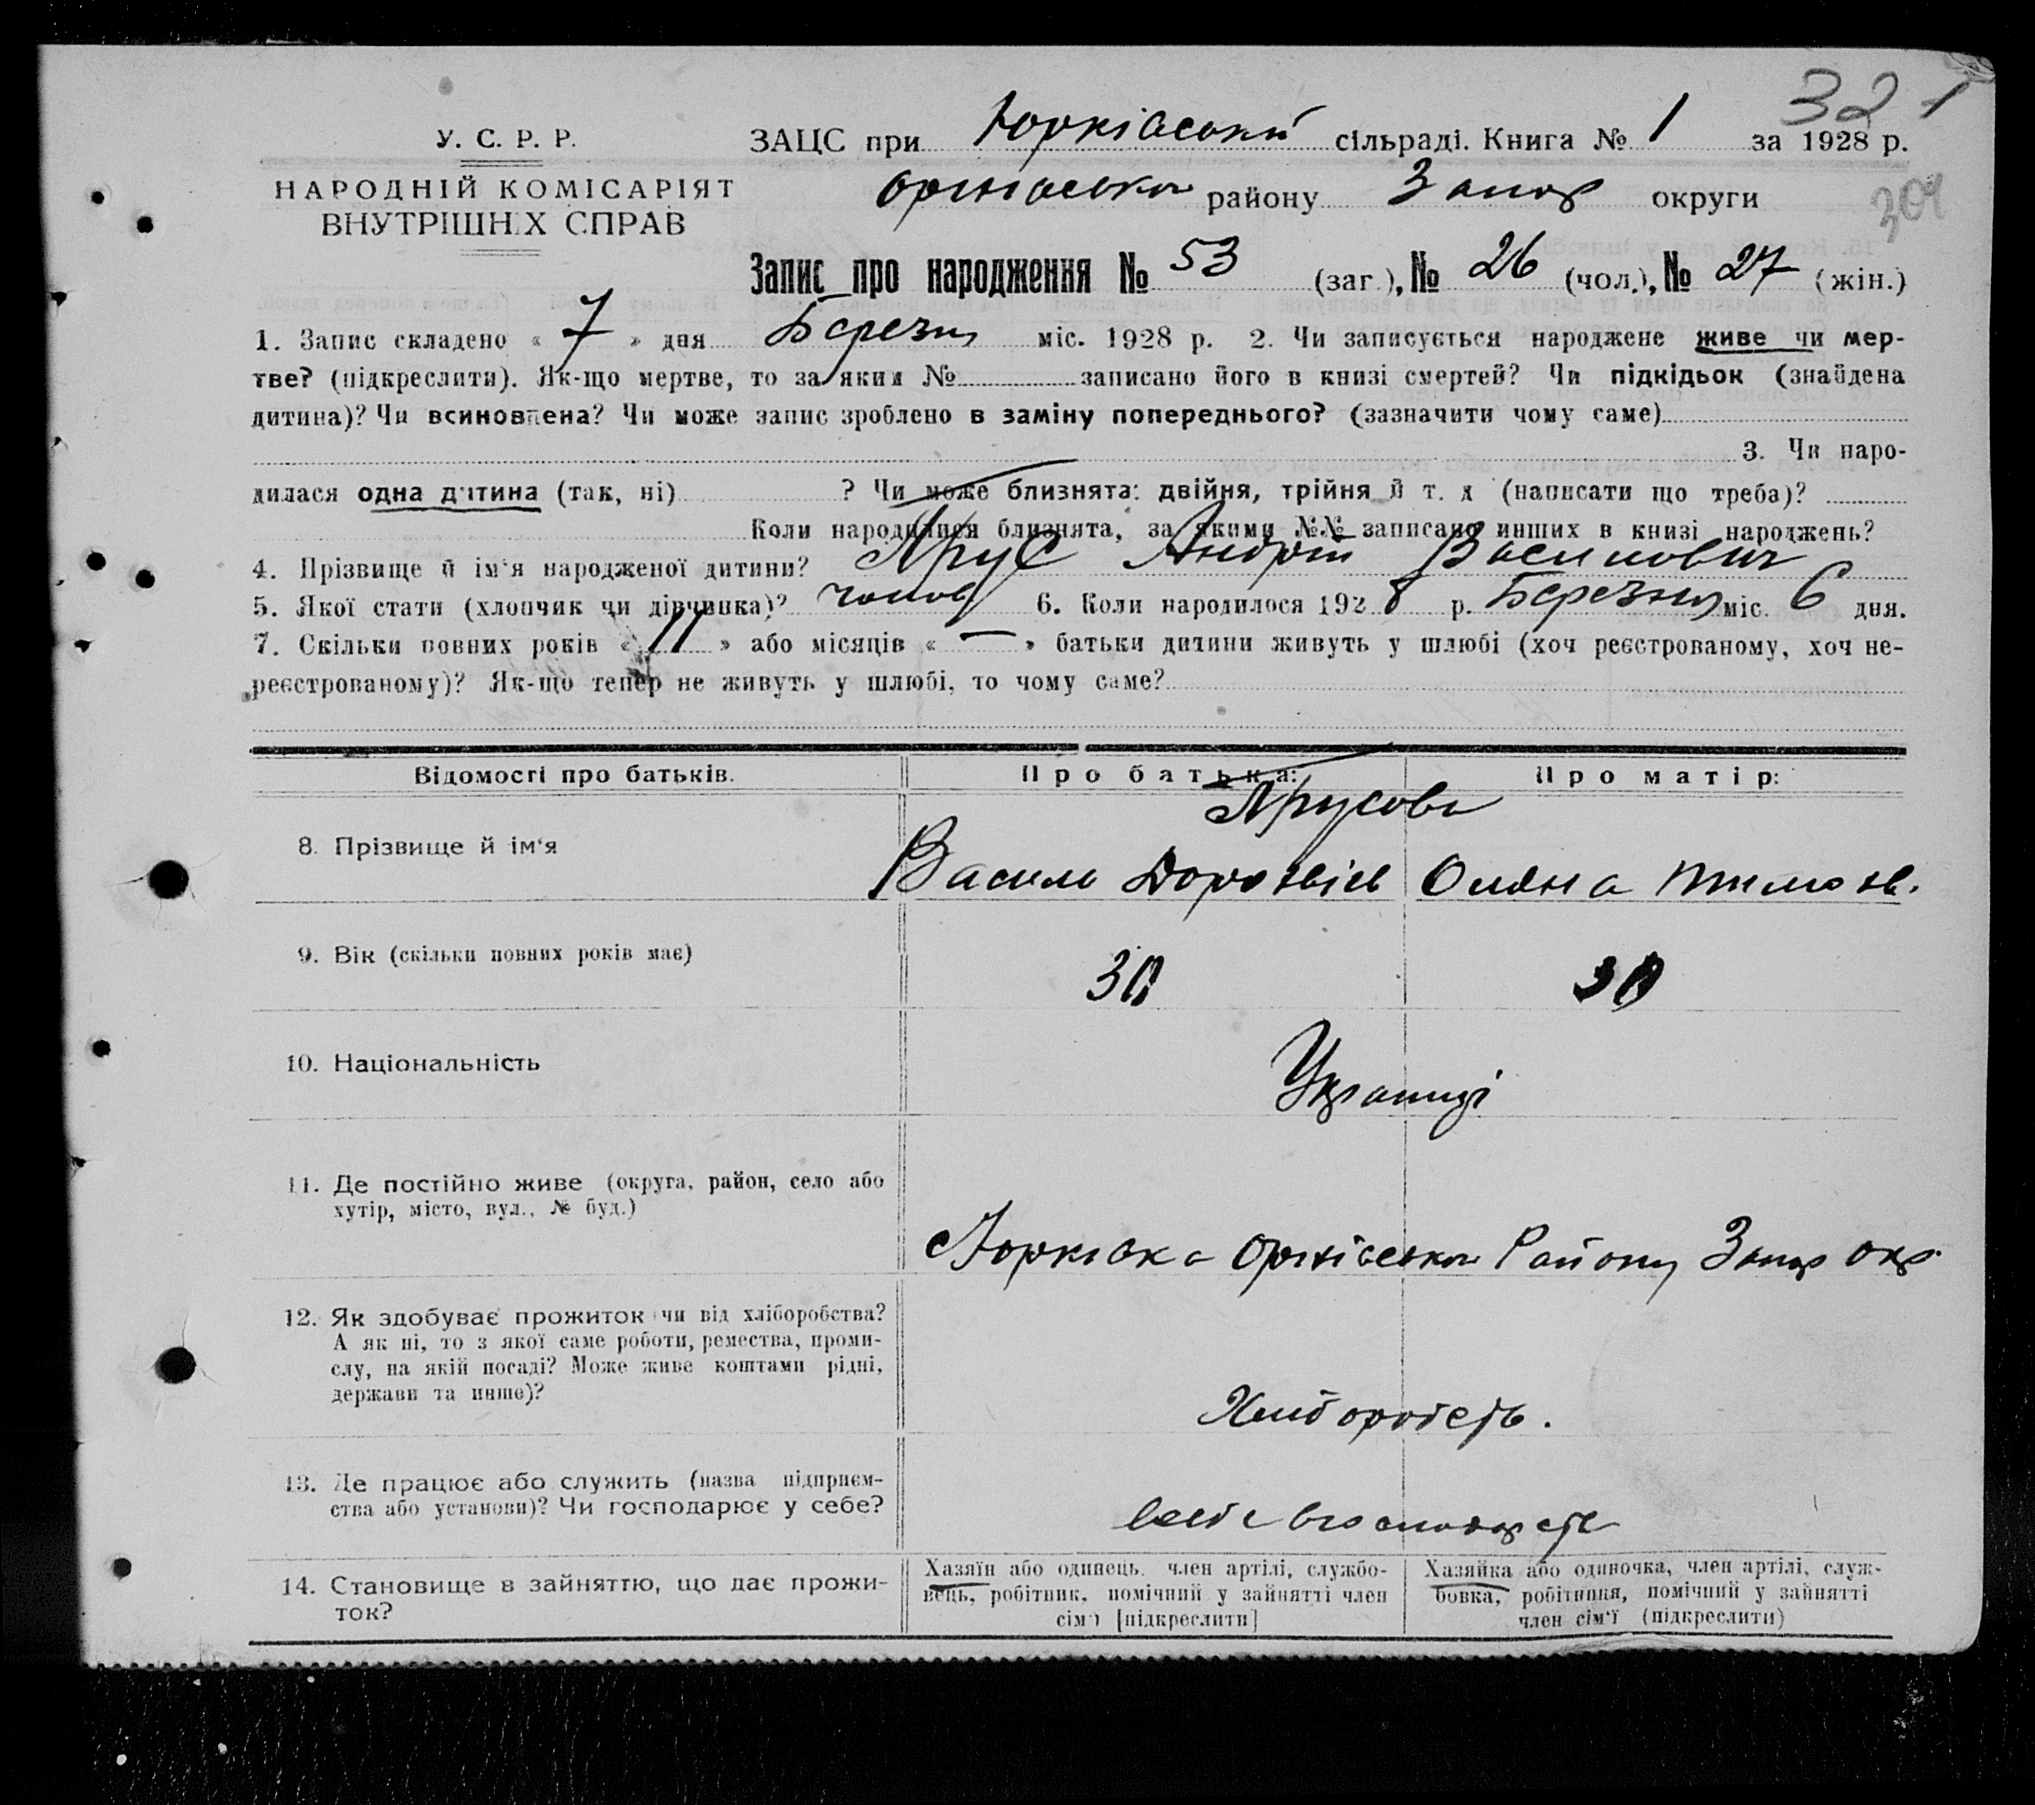 32 1
У. С. Р. Р. ЗАЦС при Юрківській сільраді. Книга № 1 за 1928 р.
НАРОДНІЙ КОМІСАРІЯТ
ВНУТРІШНІХ СПРАВ
району Запор округи
304
Запис про народження № 53 (заг.), № 26 (чол.), № 27 (жін.)
1. Запис складено « 7 » дня Березня міс. 1928 р. 2. Чи записується народжене живе чи мер-
тве? (підкреслити). Як-що мертве, то за яким № записано його в книзі смертей? Чи підкідьок (знайдена
дитина)? Чи всиновлена? Чи може запис зроблено в заміну попереднього? (зазначити чому саме)
3. Чи наро-
дилася одна дитина (так, ні) ? Чи може близнята: двійня, трійня й т. д (написати що треба)?
Коли народилися близнята, за якими №№ записано инших в книзі народжень?
4. Прізвище й ім'я народженої дитини? Ярус Андрій Васильович
5. Якої стати (хлопчик чи дівчинка)? чолов 6. Коли народилося 1928 р. Березня міс. 6 дня.
7. Скільки повних років « 11 » або місяців « — » батьки дитини живуть у шлюбі (хоч реєстрованому, хоч не-
реєстрованому)? Як-що тепер не живуть у шлюбі, то чому саме?
Відомості про батьків. Про батька: Про матір:
Ярусови
8. Прізвище й ім'я Василь Дорохвієв Оляна Тимохв.
9. Вік (скільки повних років має) 30 30
10. Національність Українці
11. Де постійно живе (округа, район, село або
хутір, місто, вул., № буд.)
Юрківка Оріхівської Району Запор окр.
12. Як здобуває прожиток чи від хліборобства?
А як ні, то з якої саме роботи, ремества, проми-
слу, на якій посаді? Може живе коштами рідні,
держави та инше)?
Хліборобств.
13. Де працює або служить (назва підприєм-
ства або установи)? Чи господарює у себе?
14. Становище в зайняттю, що дає прожи-
ток?
Хазяїн або одинець, член артілі, службо-
вець, робітник, помічний у зайнятті член
сім'ї [підкреслити]
Хазяйка або одиночка, член артілі, служ-
бовка, робітниця, помічний у зайнятті
член сім'ї (підкреслити)